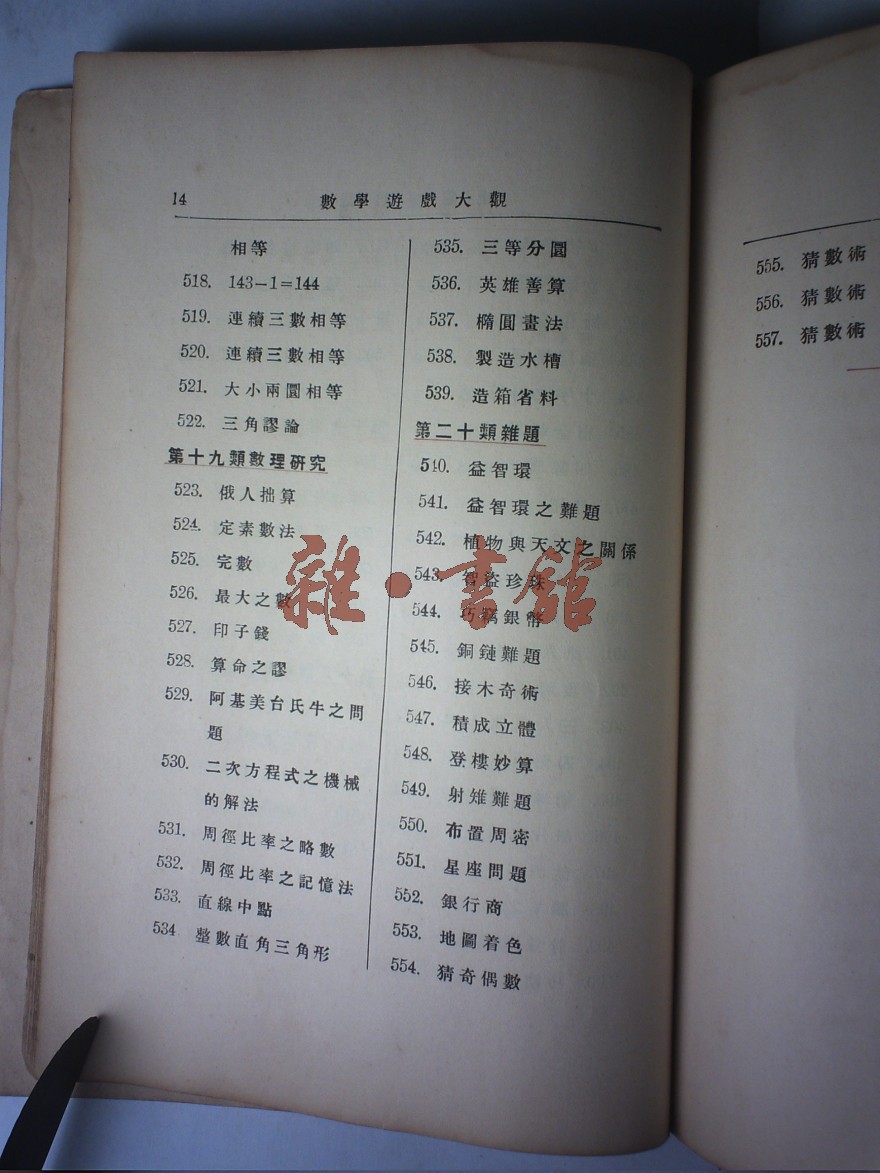 14
數學遊戲大觀
相等
518. 143-1=144
519. 連續三數相等
520. 連續三數相等
521. 大小兩圓相等
522. 三角謬論
第十九類數理研究
523. 俄人拙算
524. 定素數法
525. 完數
526. 最大之數
527. 印子錢
528. 算命之謬
529. 阿基美台氏牛之問
題
530. 二次方程式之機械
的解法
531. 周徑比率之略數
532. 周徑比率之記憶法
533. 直線中點
534 整數直角三角形
535. 三等分圓
536. 英雄善算
537. 橢圓畫法
538. 製造水槽
539. 造箱省料
第二十類雜題
540. 益智環
541. 益智環之難題
542. 植物與天文之關係
543. 智盜珍珠
544. 巧竊銀幣
545. 銅鏈難題
546. 接木奇術
547. 積成立體
548. 登樓妙算
549. 射雉難題
550. 布置周密
551. 星座問題
552. 銀行商
553. 地圖着色
554. 猜奇偶數
555. 猜數術
556. 猜數術
557. 猜數術
雜·書館